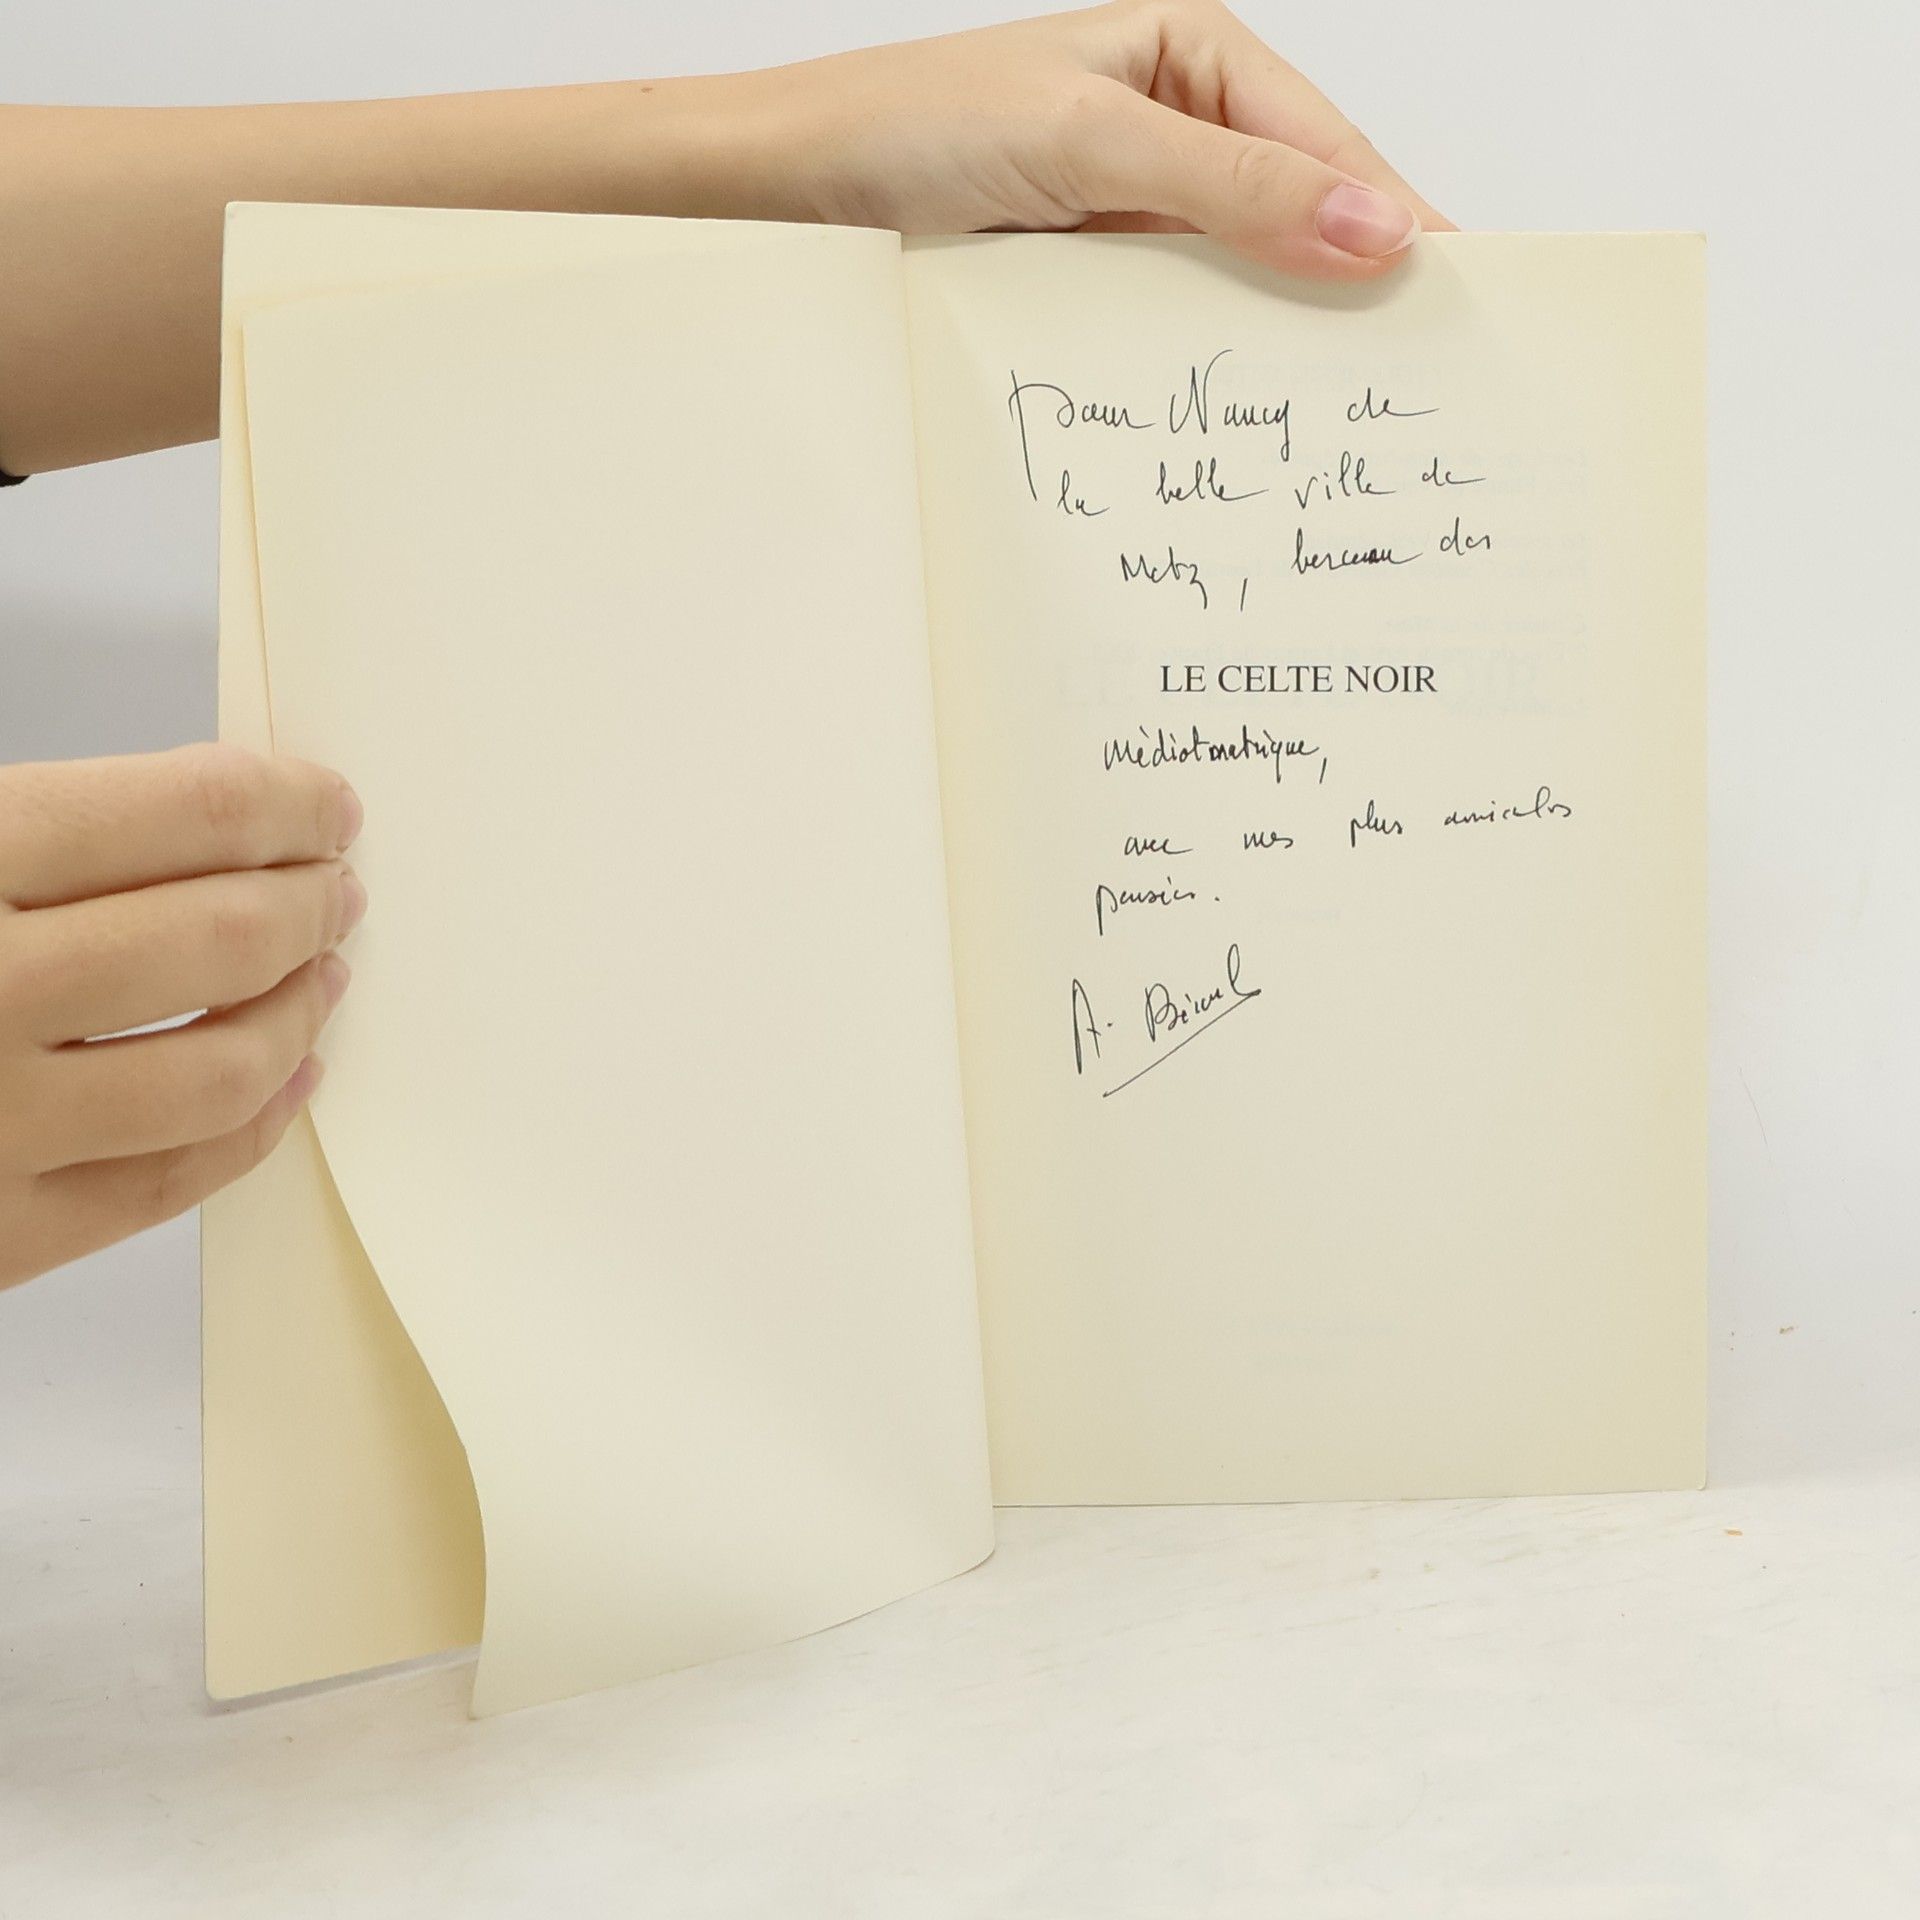 Pour Nancy de
la belle ville de
Metz, berceau des
LE CELTE NOIR
Médiomatrique,
avec mes plus amicales
pensées.
A.